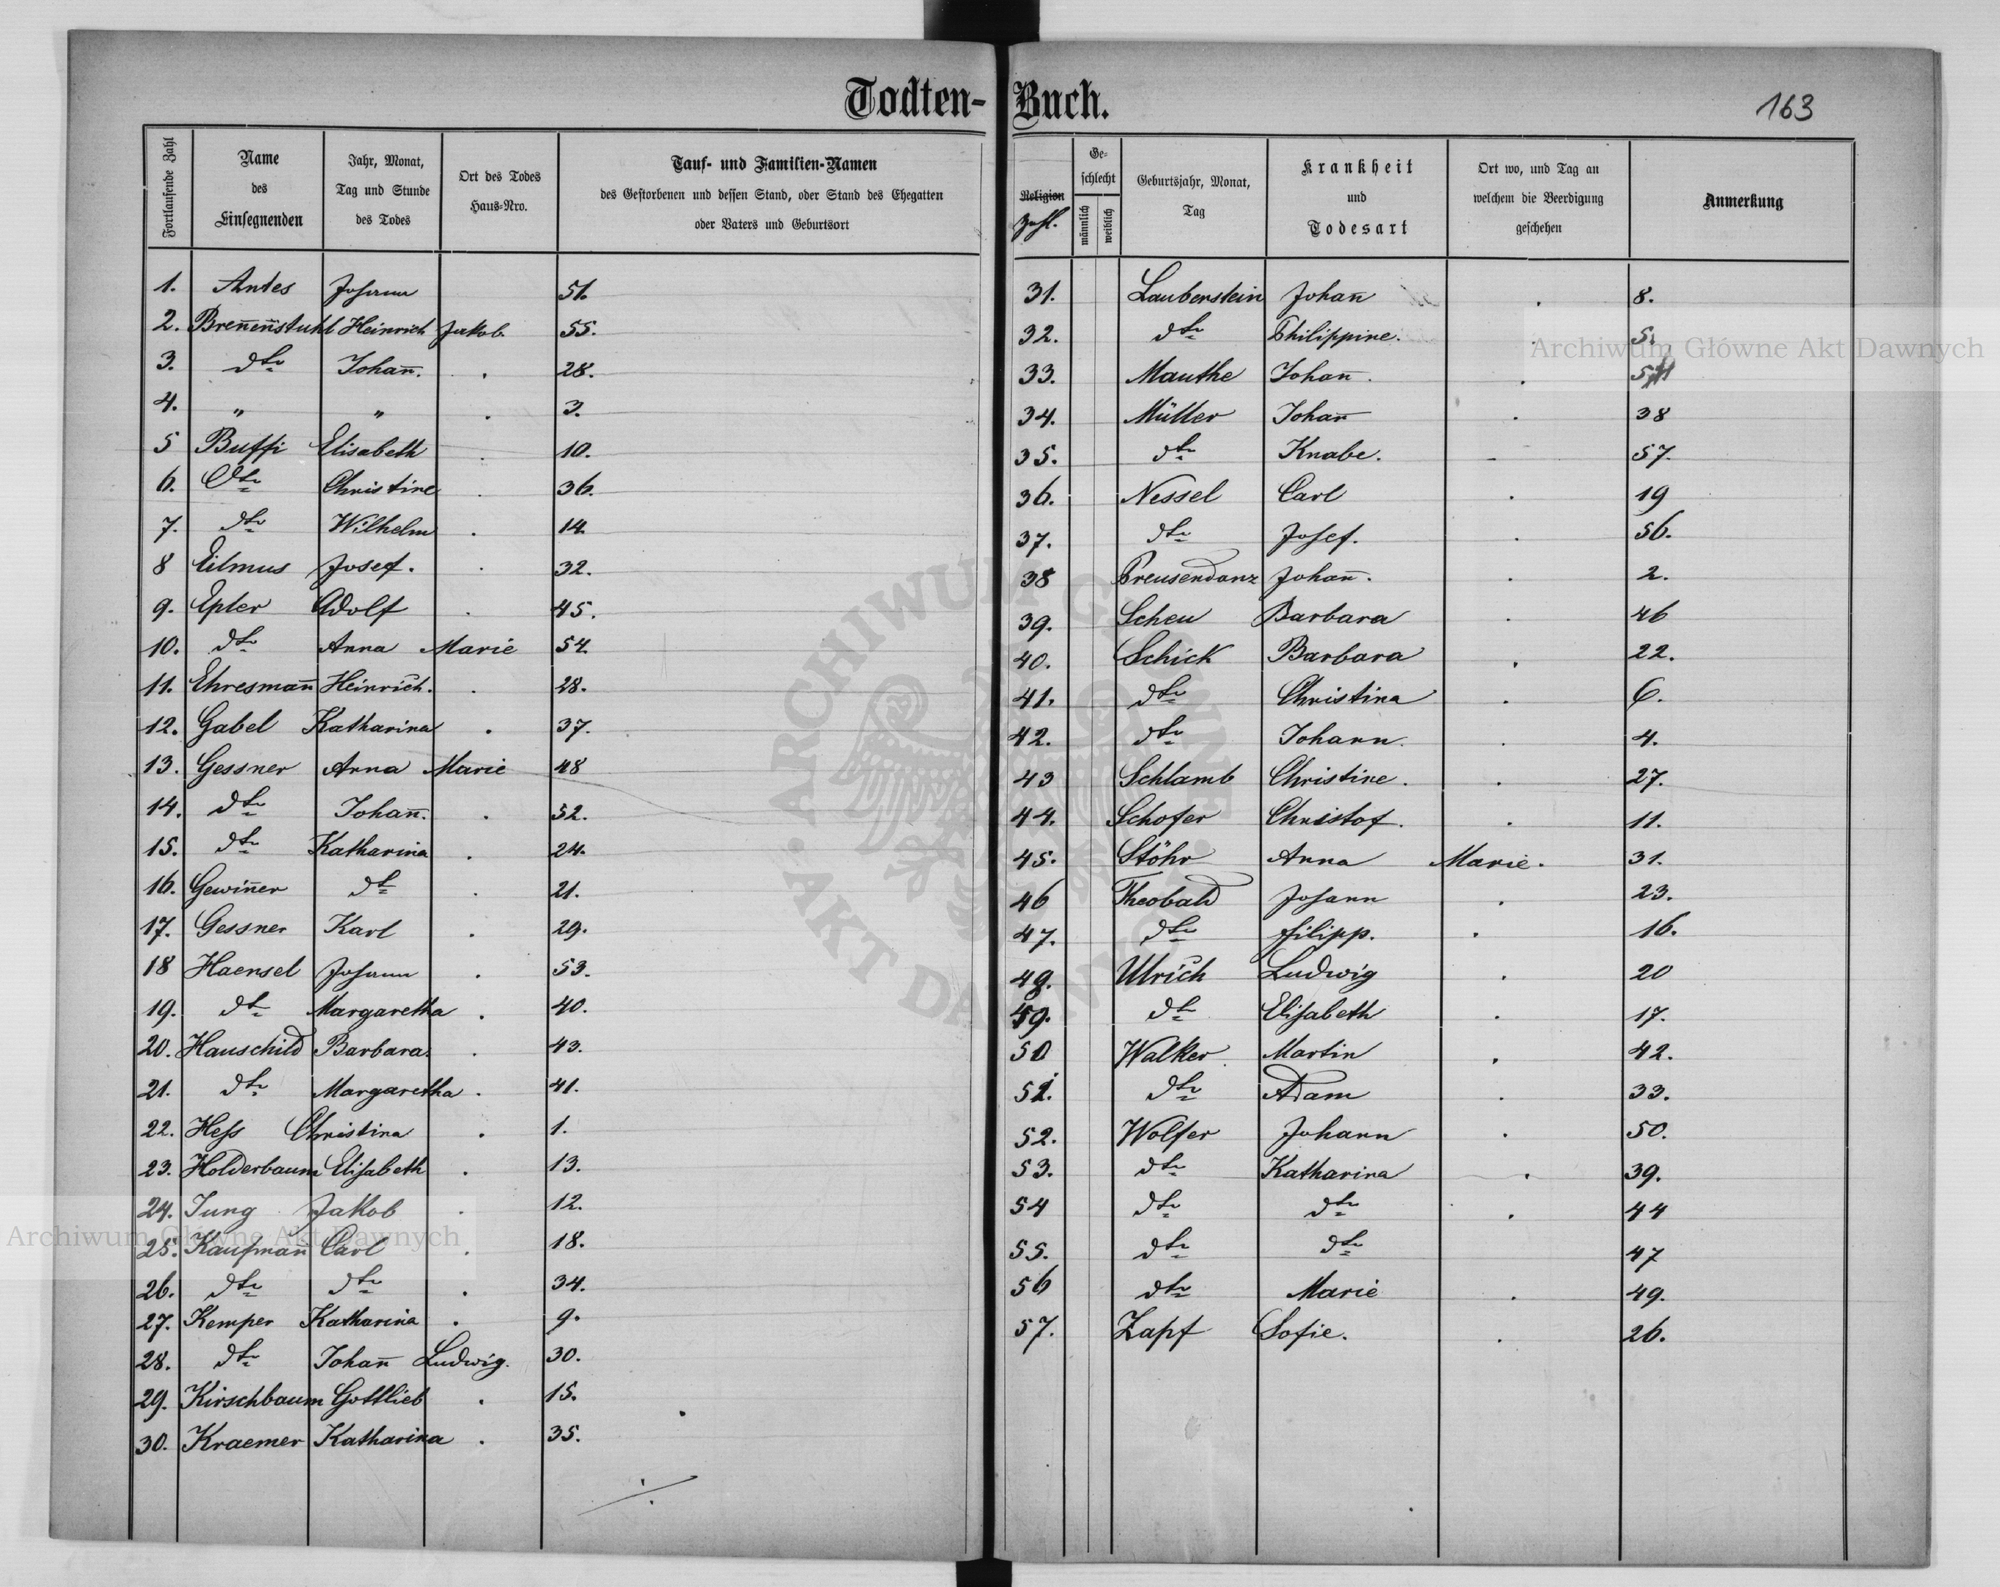 Todten-
Fortlaufende Zahl
Name
des
Einsegnenden
Jahr, Monat,
Tag und Stunde
des Todes
Ort des Todes
Haus-Nro.
Tauf- und Familien-Namen
des Gestorbenen und dessen Stand, oder Stand des Ehegatten
oder Vaters und Geburtsort
1. Antes Johann 51.
2. Breñeñstuhl Heinrich Jakob. 55.
3. dto Johan̄. . 28.
4. " " . 3.
5 Buffi Elisabeth . 10.
6. Dto Christine . 36.
7. dto Wilhelm . 14.
8 Eilmus Josef. . 32.
9. Epler Adolf . 45.
10. dto Anna Marie 54.
11. Ehresman̄ Heinrich. . 28.
12. Gabel Katharina . 37.
13. Gessner Anna Marie 48
14. dto Johan̄. . 52.
15. dto Katharina . 24.
16. Gewin̄er dto . 21.
17. Gessner Karl . 29.
18 Haensel Johann . 53.
19. dto Margaretha . 40.
20. Hauschild Barbara. . 43.
21. dto Margaretha . 41.
22. Hess Christina . 1.
23. Holderbaum Elisabeth . 13.
24. Jung Jakob . 12.
25. Kaufman̄ Carl . 18.
26. dto dto . 34.
27. Kemper Katharina . 9.
28. dto Johan̄ Ludwig. 30.
29. Kirschbaum Gottlieb . 15.
30. Kraemer Katharina . 35.
Buch.
163
Religion
Zahl.
Ge-
schlecht
männlich
weiblich
Geburtsjahr, Monat,
Tag
Krankheit
und
Todesart
Ort wo, und Tag an
welchem die Beerdigung
geschehen
Anmerkung
31. Lauberstein Johan̄ . 8.
32. dto Philippine. . 5.
33. Mauthe Johan̄. .
34. Müller Johan̄ . 38
35. dto Knabe. 57.
36. Nessel Carl . 19
37. dto Josef. . 56.
38 Preusendanz Johan̄. . 2.
39. Scheu Barbara . 46
40. Schick Barbara . 22.
41. dto Christina . 6.
42. dto Johann. . 4.
43 Schlamb Christine. . 27.
44. Schofer Christof. . 11.
45. Stöhr Anna Marie. 31.
46 Theobald Johann . 23.
47. dto Filipp. . 16.
48. Ulrich Ludwig . 20
49. dto Elisabeth . 17.
50 Walker Martin . 42.
51. dto Adam . 33.
52. Wolfer Johann . 50.
53. dto Katharina . 39.
54 dto dto . 44
55. dto dto 47
56 dto Marie . 49.
57. Zapf Sofie. . 26.
Archiwum Główne Akt Dawnych
Archiwum Główne Akt Dawnych
ARCHIWUM GŁÓWNE
AKT DAWNYCH